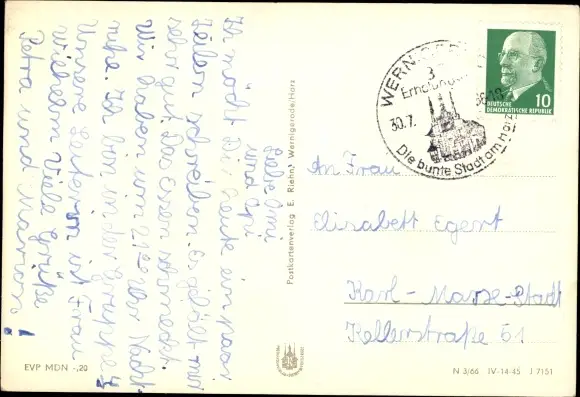 Liebe Omi
und Opi
Ich möcht Dir heute ein paar
Zeilen schreiben. Es gefällt mir
sehr gut. Das Essen schmeckt.
Wir haben um 21 00 Uhr Nacht-
ruhe. Ich bin in der Gruppe 4
Unsere Leiterin ist Frau
Viele Grüße
Petra und Marion!
Postkartenverlag E. Riehn, Wernigerode/Harz
EVP MDN -,20
WERNIGERODE
3
Erholung
30.7.
66-18
Die bunte Stadt am Harz
DEUTSCHE
DEMOKRATISCHE REPUBLIK
10
An Frau
Elisabett Egert
Karl-Marx-Stadt
Kellerstraße 51
N 3/66 IV-14-45 J 7151